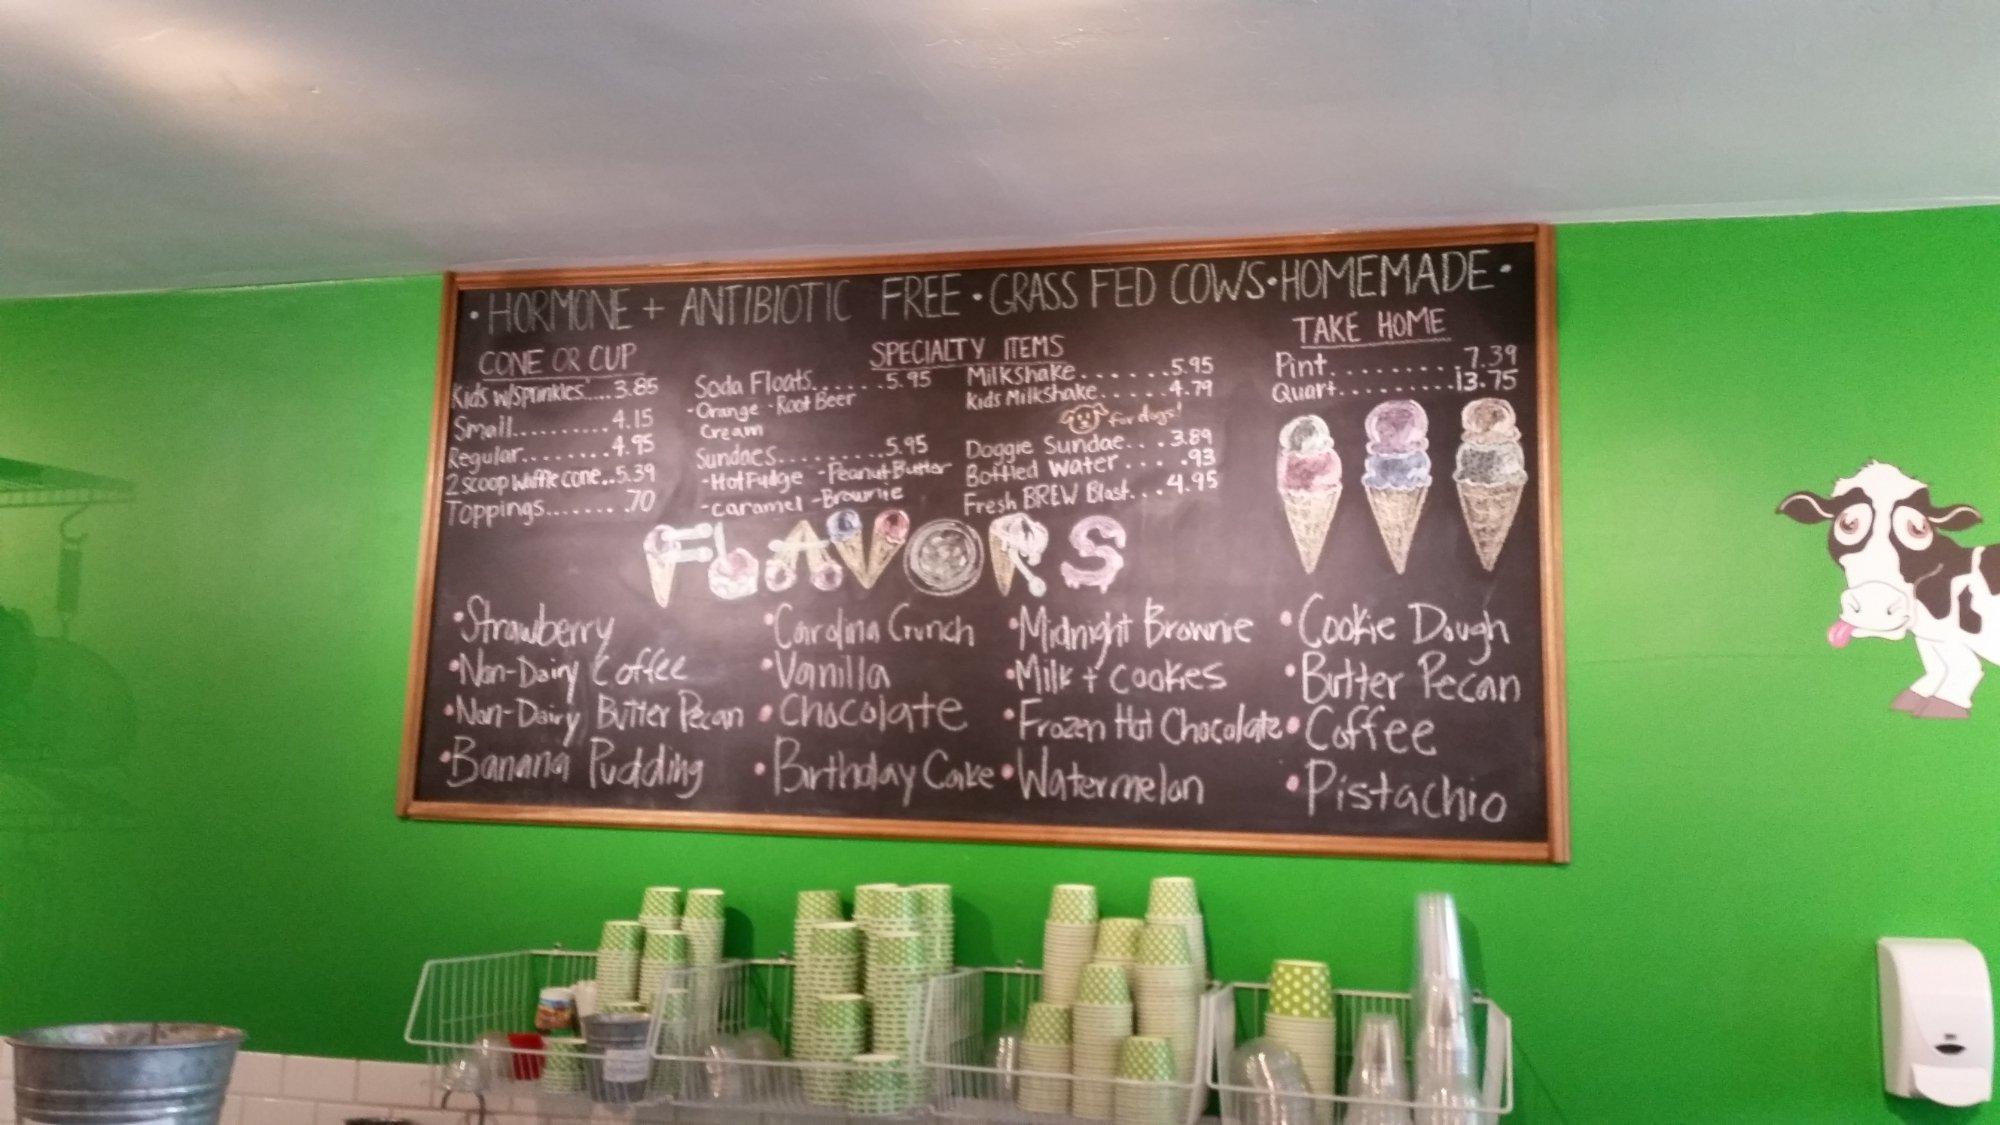 • HORMONE + ANTIBIOTIC FREE • GRASS FED COWS • HOMEMADE •
CONE OR CUP
Kids w/sprinkles.....3.85
Small..........4.15
Regular........4.95
2 scoop waffle cone..5.39
Toppings....... .70
SPECIALTY ITEMS
Soda Floats......5.95
-Orange -Root Beer
Cream
Sundaes..........5.95
-Hot Fudge -Peanut Butter
-caramel -Brownie
Milkshake.......5.95
Kids Milkshake.....4.79
for dogs!
Doggie Sundae...3.89
Bottled Water.... .93
Fresh BREW Blast...4.95
TAKE HOME
Pint..........7.39
Quart..........13.75
FLAVORS
•Strawberry
•Non-Dairy Coffee
•Non-Dairy Butter Pecan
•Banana Pudding
•Carolina Crunch
•Vanilla
•Chocolate
•Birthday Cake
•Midnight Brownie
•Milk + cookies
•Frozen Hot Chocolate
•Watermelon
•Cookie Dough
•Butter Pecan
•Coffee
•Pistachio